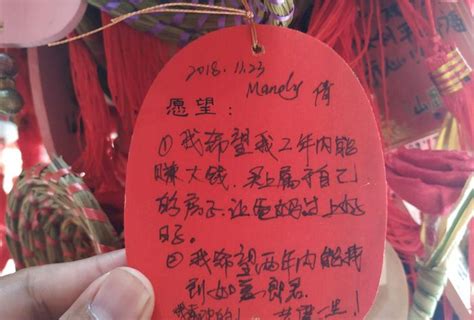 2018.11.23
Mandy 倩
愿望：
①我希望我2年内能
赚大钱，买上属于自己
的房子，让爸妈过上好
日子。
②我希望两年内能找
到如意郎君
一生！
山